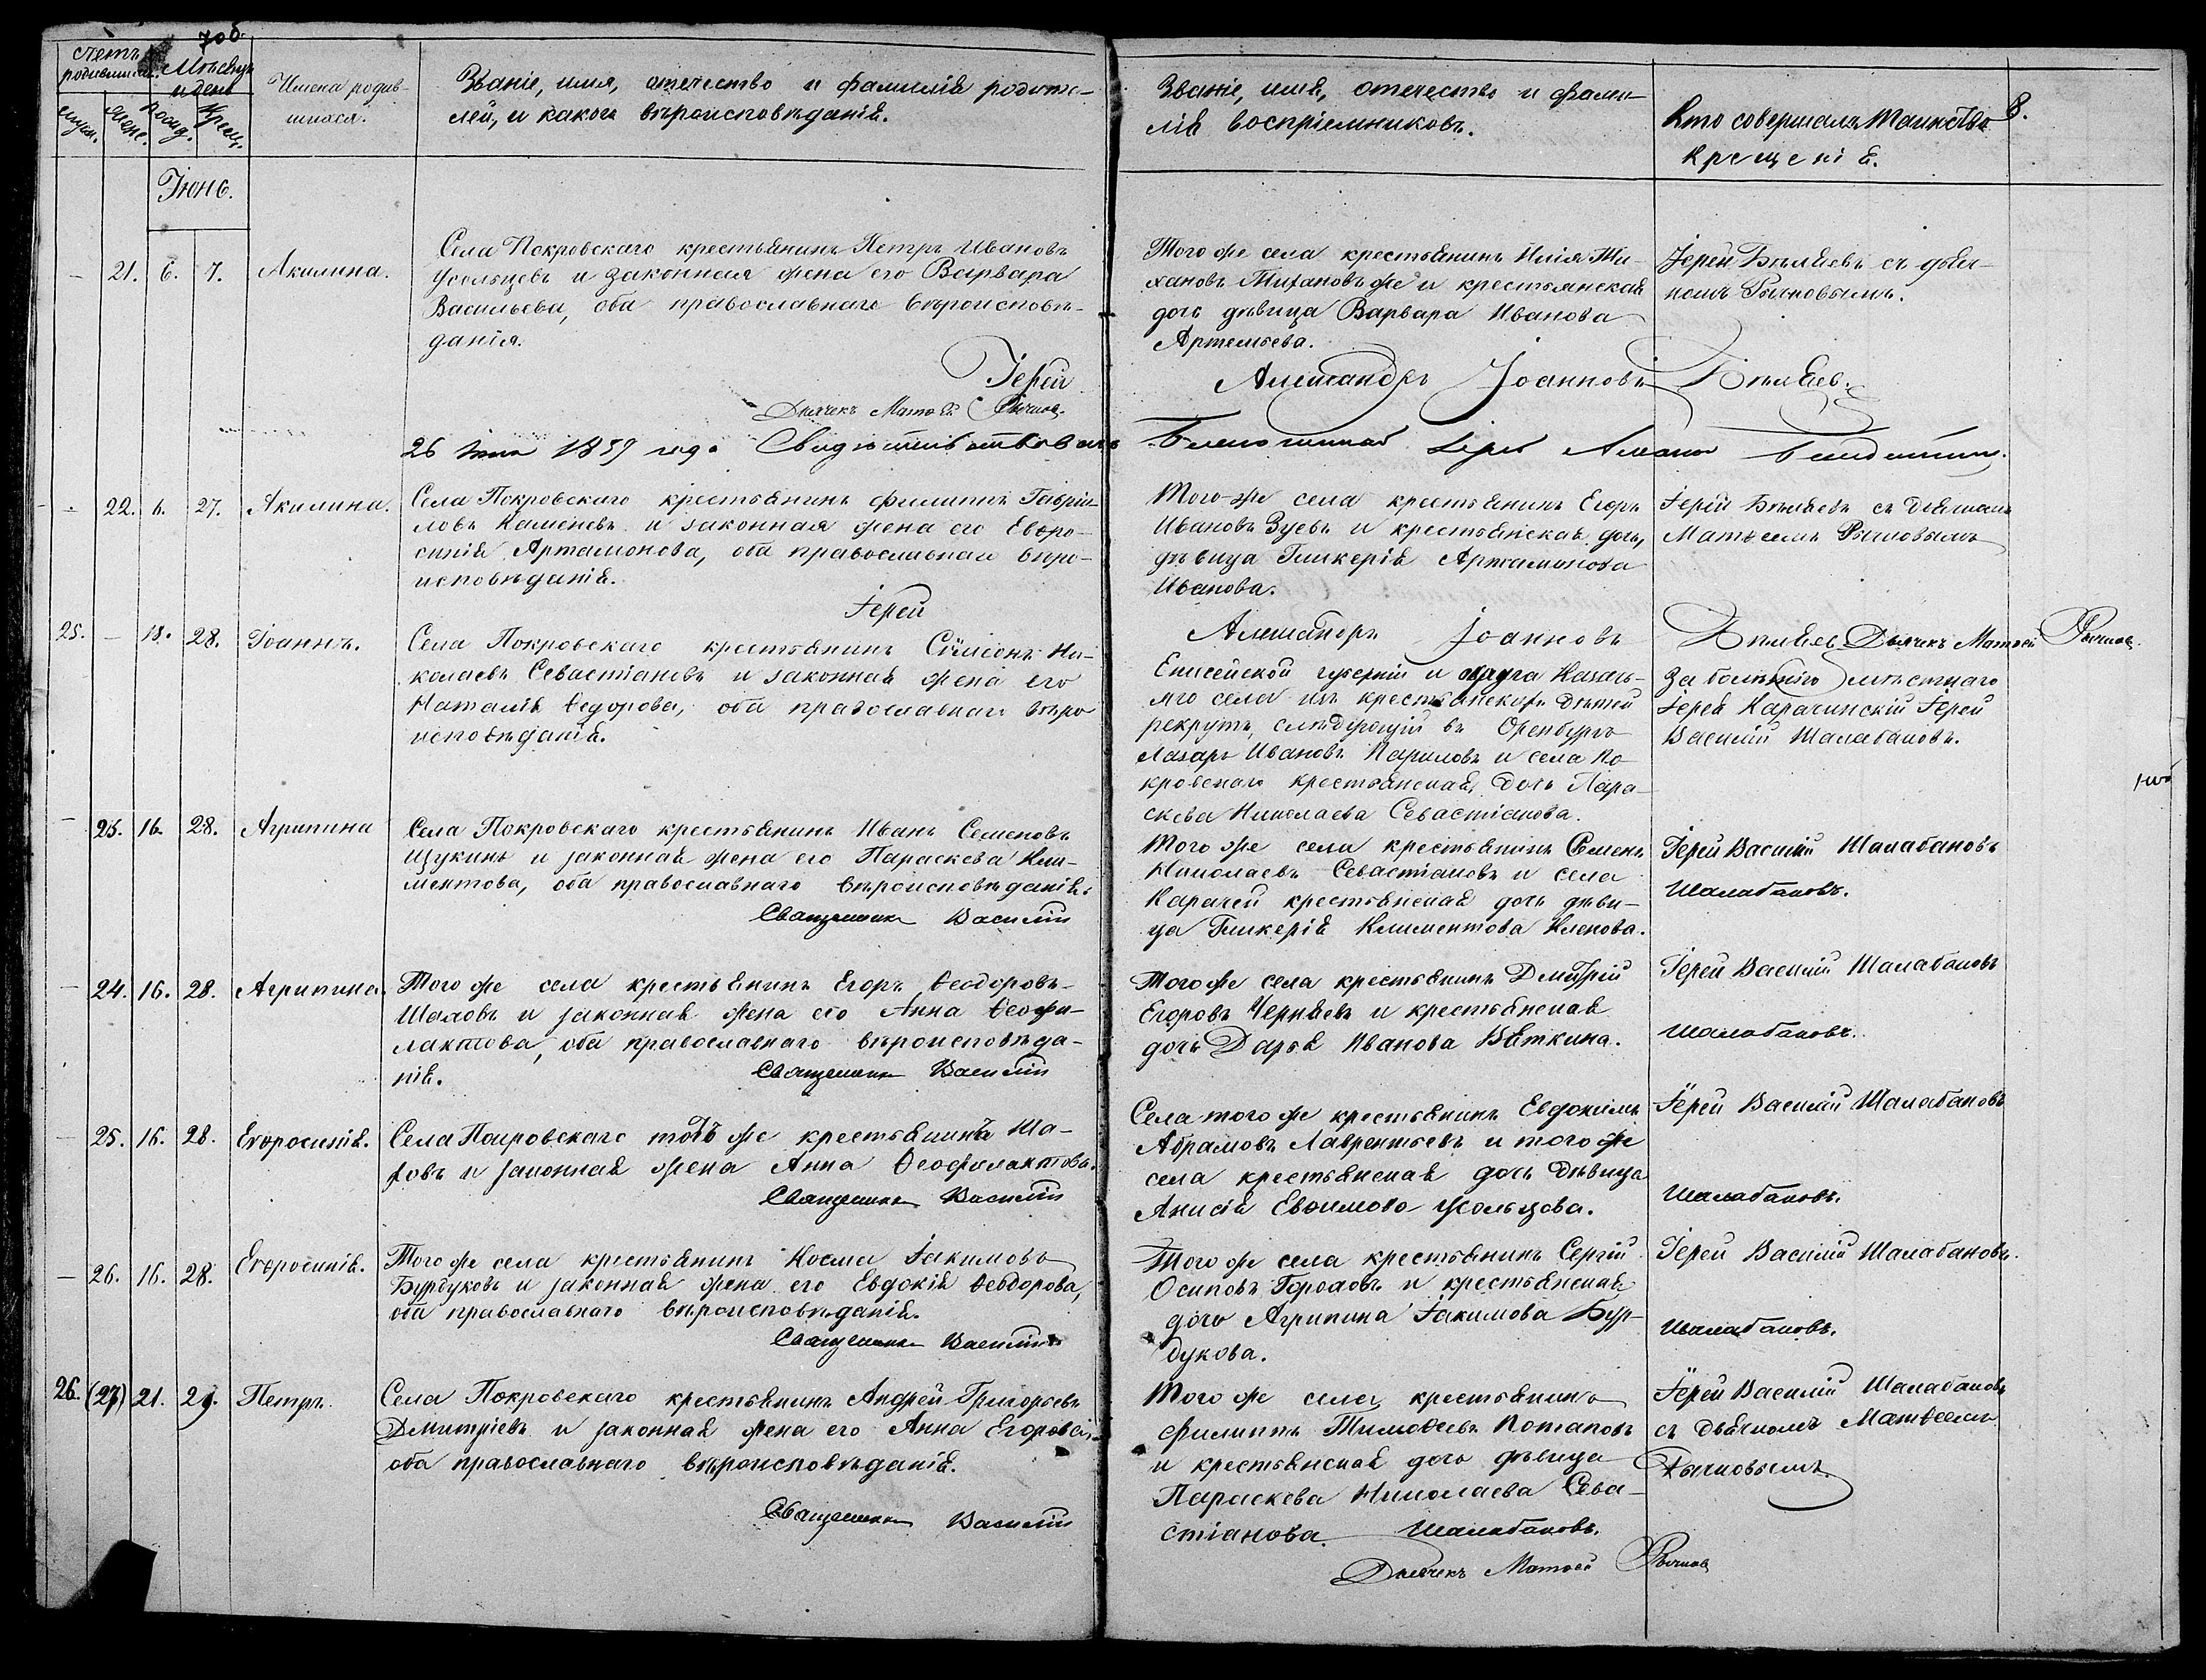 7 об.
счетъ
родившихся.
Мѣсяцъ
и день
мужес.
женс.
рожд.
крещ.
Имена родив-
шихся.
Званіе, имя, отечество и фамилія родите-
лей, и какого вѣроисповѣданія.
Званіе, имя, отечество и фами-
лія воспріемниковъ.
Кто совершалъ Таинство
Крещенія.
8.
Іюнь.
— 21. 6. 7. Акилина.
Села Покровскаго крестьянинъ Петръ Ивановъ
Усольцевъ и законная жена его Варвара
Васильева, оба православнаго вѣроисповѣ-
данія.
Того же села крестьянинъ Илія Ти-
хановъ Тихановъ же и крестьянская
дочь дѣвица Варвара Иванова
Артемьева.
Іерей Бѣляевъ съ дьяч-
комъ Рычковымъ.
Іерей Александръ Іоанновъ Бѣляевъ.
Дьячекъ Матѳей Рычковъ.
26 1859 года Свидѣтельствовалъ Благочинный Іерей
— 22. 6. 27. Акилина.
Села Покровскаго крестьянинъ Филиппъ Гаврии-
ловъ Каменевъ и законная жена его Евѳро-
синія Артамонова, оба православнаго вѣро-
исповѣданія.
Того-же села крестьянинъ Егоръ
Ивановъ Зуевъ и крестьянская дочь,
дѣвица Гликерія Артамонова
Иванова.
Іерей Бѣляевъ съ дьячкомъ
Матѳеемъ Рычковымъ
Іерей Александръ Іоанновъ Бѣляевъ Дьячекъ Матѳей Рычковъ.
25. — 18. 28. Іоаннъ.
Села Покровскаго крестьянинъ Сѵмеонъ Ни-
колаевъ Севастіановъ и законная жена его
Наталія Ѳедорова, оба православнаго вѣро
исповѣданія.
Енисейской губерніи и округа Казачь-
яго села изъ крестьянскихъ дѣтей
рекрутъ, слѣдующій въ Оренбургъ
Лазарь Ивановъ Париловъ и села По
кровскаго крестьянская дочь Пара-
скева Николаева Севастіанова.
За болѣзнію мѣстнаго
Іерея Карачинскій Іерей
Василій Шалабановъ.
— 23. 16. 28. Агрипина
Села Покровскаго крестьянинъ Иванъ Семеновъ
Щукинъ и законная жена его Параскева Кли-
ментова, оба православнаго вѣроисповѣданія.
Того же села крестьянинъ Семенъ
Николаевъ Севастіановъ и села
Карачей крестьянская дочь дѣви-
ца Гликерія Климентова Кленова.
Іерей Василій Шалабановъ
Священникъ Василій Шалабановъ.
— 24. 16. 28. Агрипина.
Того же села крестьянинъ Егоръ Ѳеодоровъ
Шаховъ и законная жена его Анна Ѳеофи-
лактова, оба православнаго вѣроисповѣда-
нія.
Того же села крестьянинъ Дмитрій
Егоровъ Черняевъ и крестьянская
дочь Дарья Иванова Вяткина.
Іерей Василій Шалабановъ
Священникъ Василій Шалабановъ.
— 25. 16. 28. Евѳросинія.
Села Покровскаго тотъ же крестьянинъ Ша-
ховъ и законная жена Анна Ѳеофилактова.
Села того же крестьянинъ Евдокимъ
Абрамовъ Лаврентьевъ и того же
села крестьянская дочь дѣвица
Анисія Евѳимова Усольцова.
Іерей Василій Шалабановъ
Священникъ Василій Шалабановъ.
— 26. 16. 28. Евѳросинія.
Того же села крестьянинъ Косма Іакимовъ
Бурдуковъ и законная жена его Евдокія Ѳеодорова,
оба православнаго вѣроисповѣданія.
Того же села крестьянинъ Сергій
Осиповъ и крестьянская
дочь Агрипина Іакимова Бур-
дукова.
Іерей Василій Шалабановъ.
Священникъ Василій Шалабановъ.
26. (27) 21. 29. Петръ.
Села Покровскаго крестьянинъ Андрей Григорьевъ
Дмитріевъ и законная жена его Анна Егорова,
оба православнаго вѣроисповѣданія.
Того же села крестьянинъ
Филиппъ Тимоѳеевъ Потаповъ
и крестьянская дочь дѣвица
Параскева Николаева Сева-
стіанова.
Іерей Василій Шалабановъ
съ дьячкомъ Матѳеемъ
Рычковымъ.
Священникъ Василій Шалабановъ.
Дьячекъ Матѳей Рычковъ